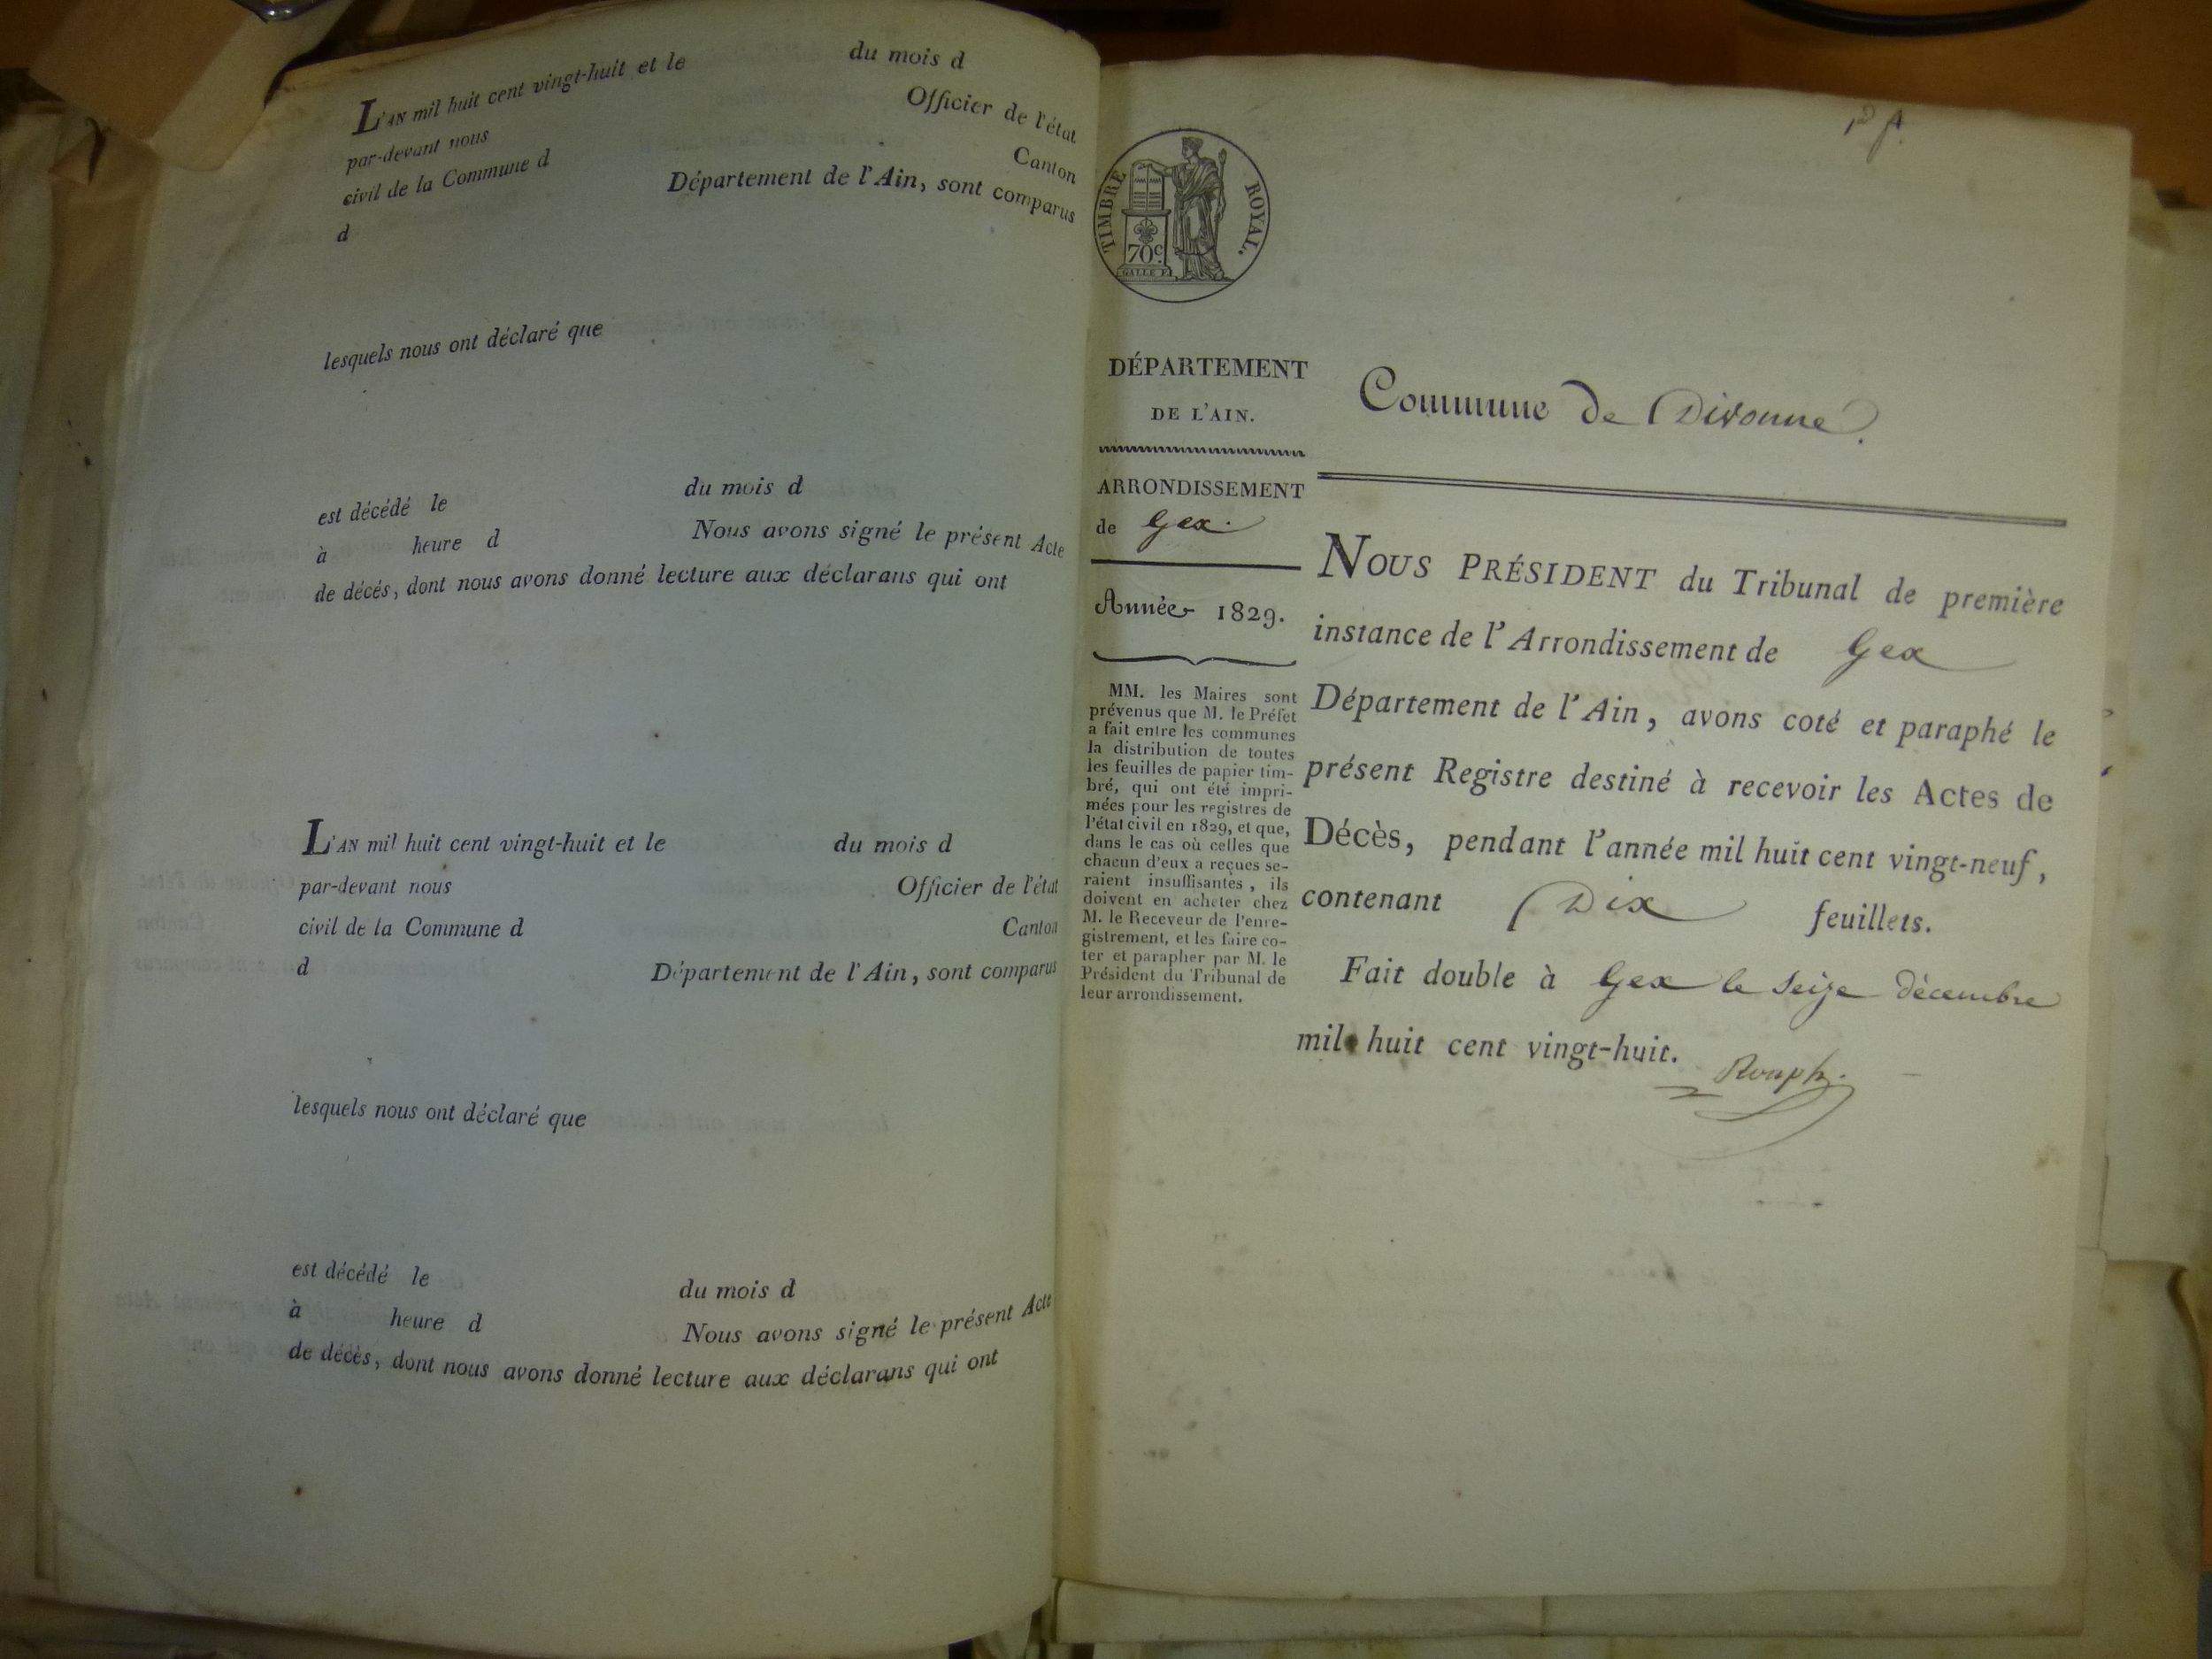 L'AN mil huit cent vingt-huit et le du mois d
par-devant nous Officier de l'état
civil de la Commune d Canton
d Département de l'Ain, sont comparus
lesquels nous ont déclaré que
est décédé le du mois d
à heure d Nous avons signé le présent Acte
de décés, dont nous avons donné lecture aux déclarans qui ont
L'AN mil huit cent vingt-huit et le du mois d
par-devant nous Officier de l'état
civil de la Commune d Canton
d Département de l'Ain, sont comparus
lesquels nous ont déclaré que
est décédé le du mois d
à heure d Nous avons signé le présent Acte
de décès, dont nous avons donné lecture aux déclarans qui ont
TIMBRE ROYAL.
70c.
GALLE F.
DÉPARTEMENT
DE L'AIN.
ARRONDISSEMENT
de Gex.
Année 1829.
MM. les Maires sont
prévenus que M. le Préfet
a fait entre les communes
la distribution de toutes
les feuilles de papier tim-
bré, qui ont été impri-
mées pour les registres de
l'état civil en 1829, et que,
dans le cas où celles que
chacun d'eux a reçues se-
raient insuffisantes, ils
doivent en acheter chez
M. le Receveur de l'enre-
gistrement, et les faire co-
ter et parapher par M. le
Président du Tribunal de
leur arrondissement.
Commune de Divonne.
NOUS PRÉSIDENT du Tribunal de première
instance de l'Arrondissement de Gex
Département de l'Ain, avons coté et paraphé le
présent Registre destiné à recevoir les Actes de
Décès, pendant l'année mil huit cent vingt-neuf,
contenant Dix feuillets.
Fait double à Gex le seize décembre
mil huit cent vingt-huit.